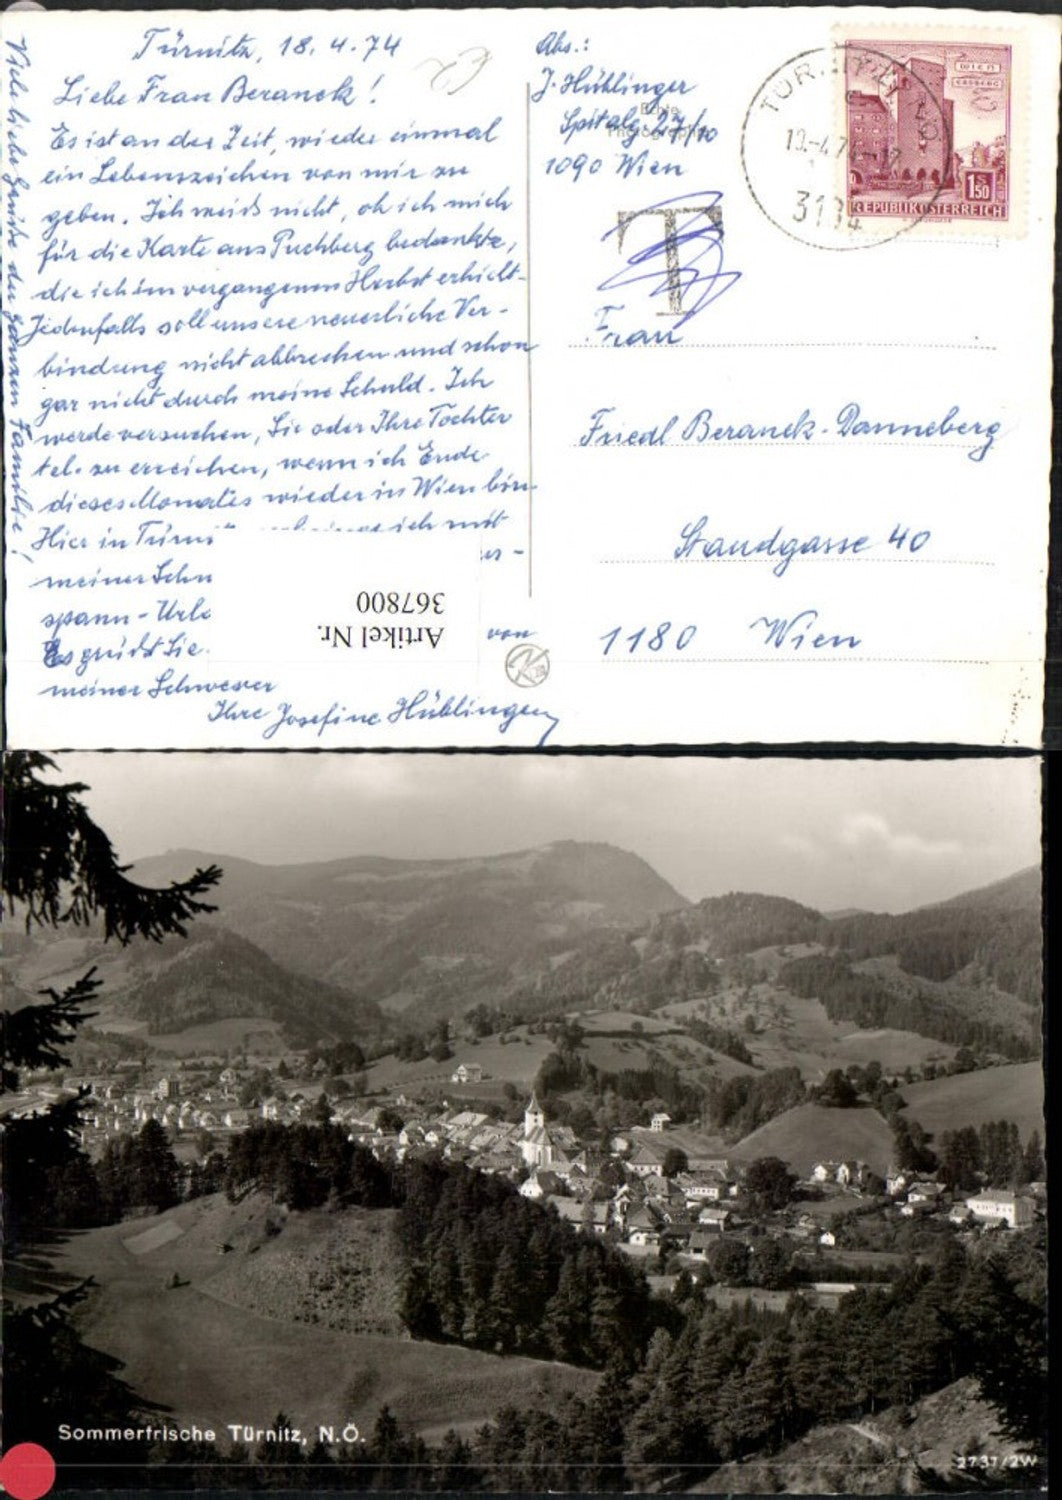 Türnitz, 18.4.74
Liebe Frau Beranek!
Es ist an der Zeit, wieder einmal
ein Lebenszeichen von mir zu
geben. Ich weiß nicht, ob ich mich
für die Karte aus Puchberg bedankte,
die ich im vergangenen Herbst erhielt.
Jedenfalls soll unsere neuerliche Ver-
bindung nicht abbrechen und schon
gar nicht durch meine Schuld. Ich
werde versuchen, Sie oder Ihre Tochter
tel. zu erreichen, wenn ich Ende
dieses Monates wieder in Wien bin.
Hier in Türni
ich mit
meiner Schw
spann-Urla
Es grüßt Sie
von
meiner Schwester
Ihre Josefine Hüblinger
Viele liebe Grüße der ganzen Familie!
Artikel Nr.
367800
Abs.:
J. Hüblinger
Spitalg. 27/10
1090 Wien
Echte
T
REPUBLIK ÖSTERREICH
1.50
3184
Frau
Friedl Beranek-Danneberg
Staudgasse 40
1180 Wien
Sommerfrische Türnitz, N.Ö.
2737/2W